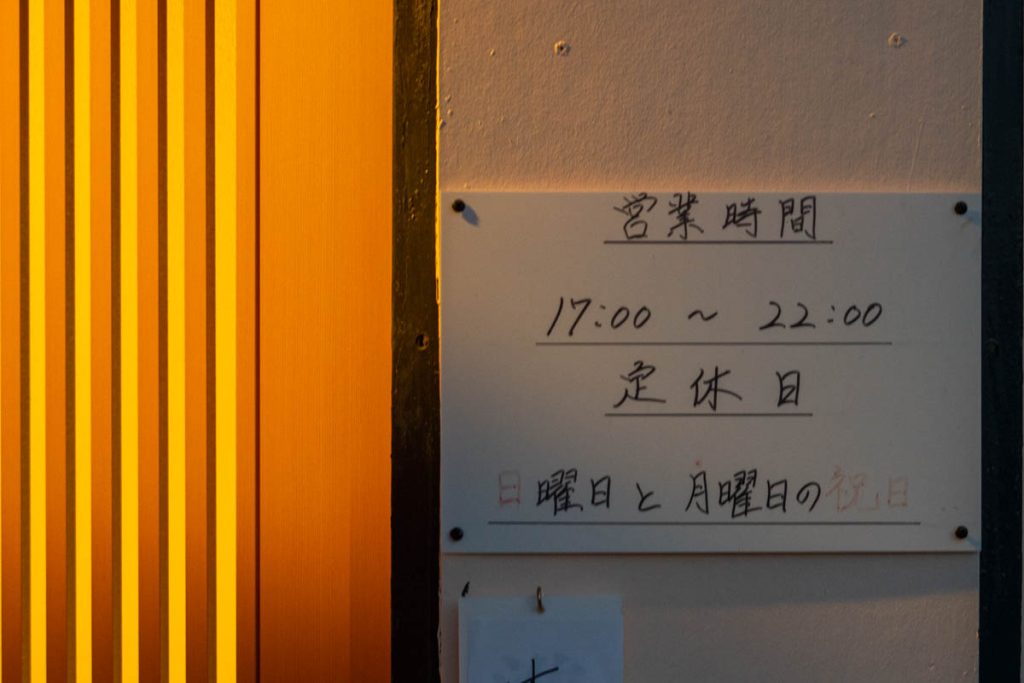 営業時間
17:00 ~ 22:00
定休日
日曜日と月曜日の祝日